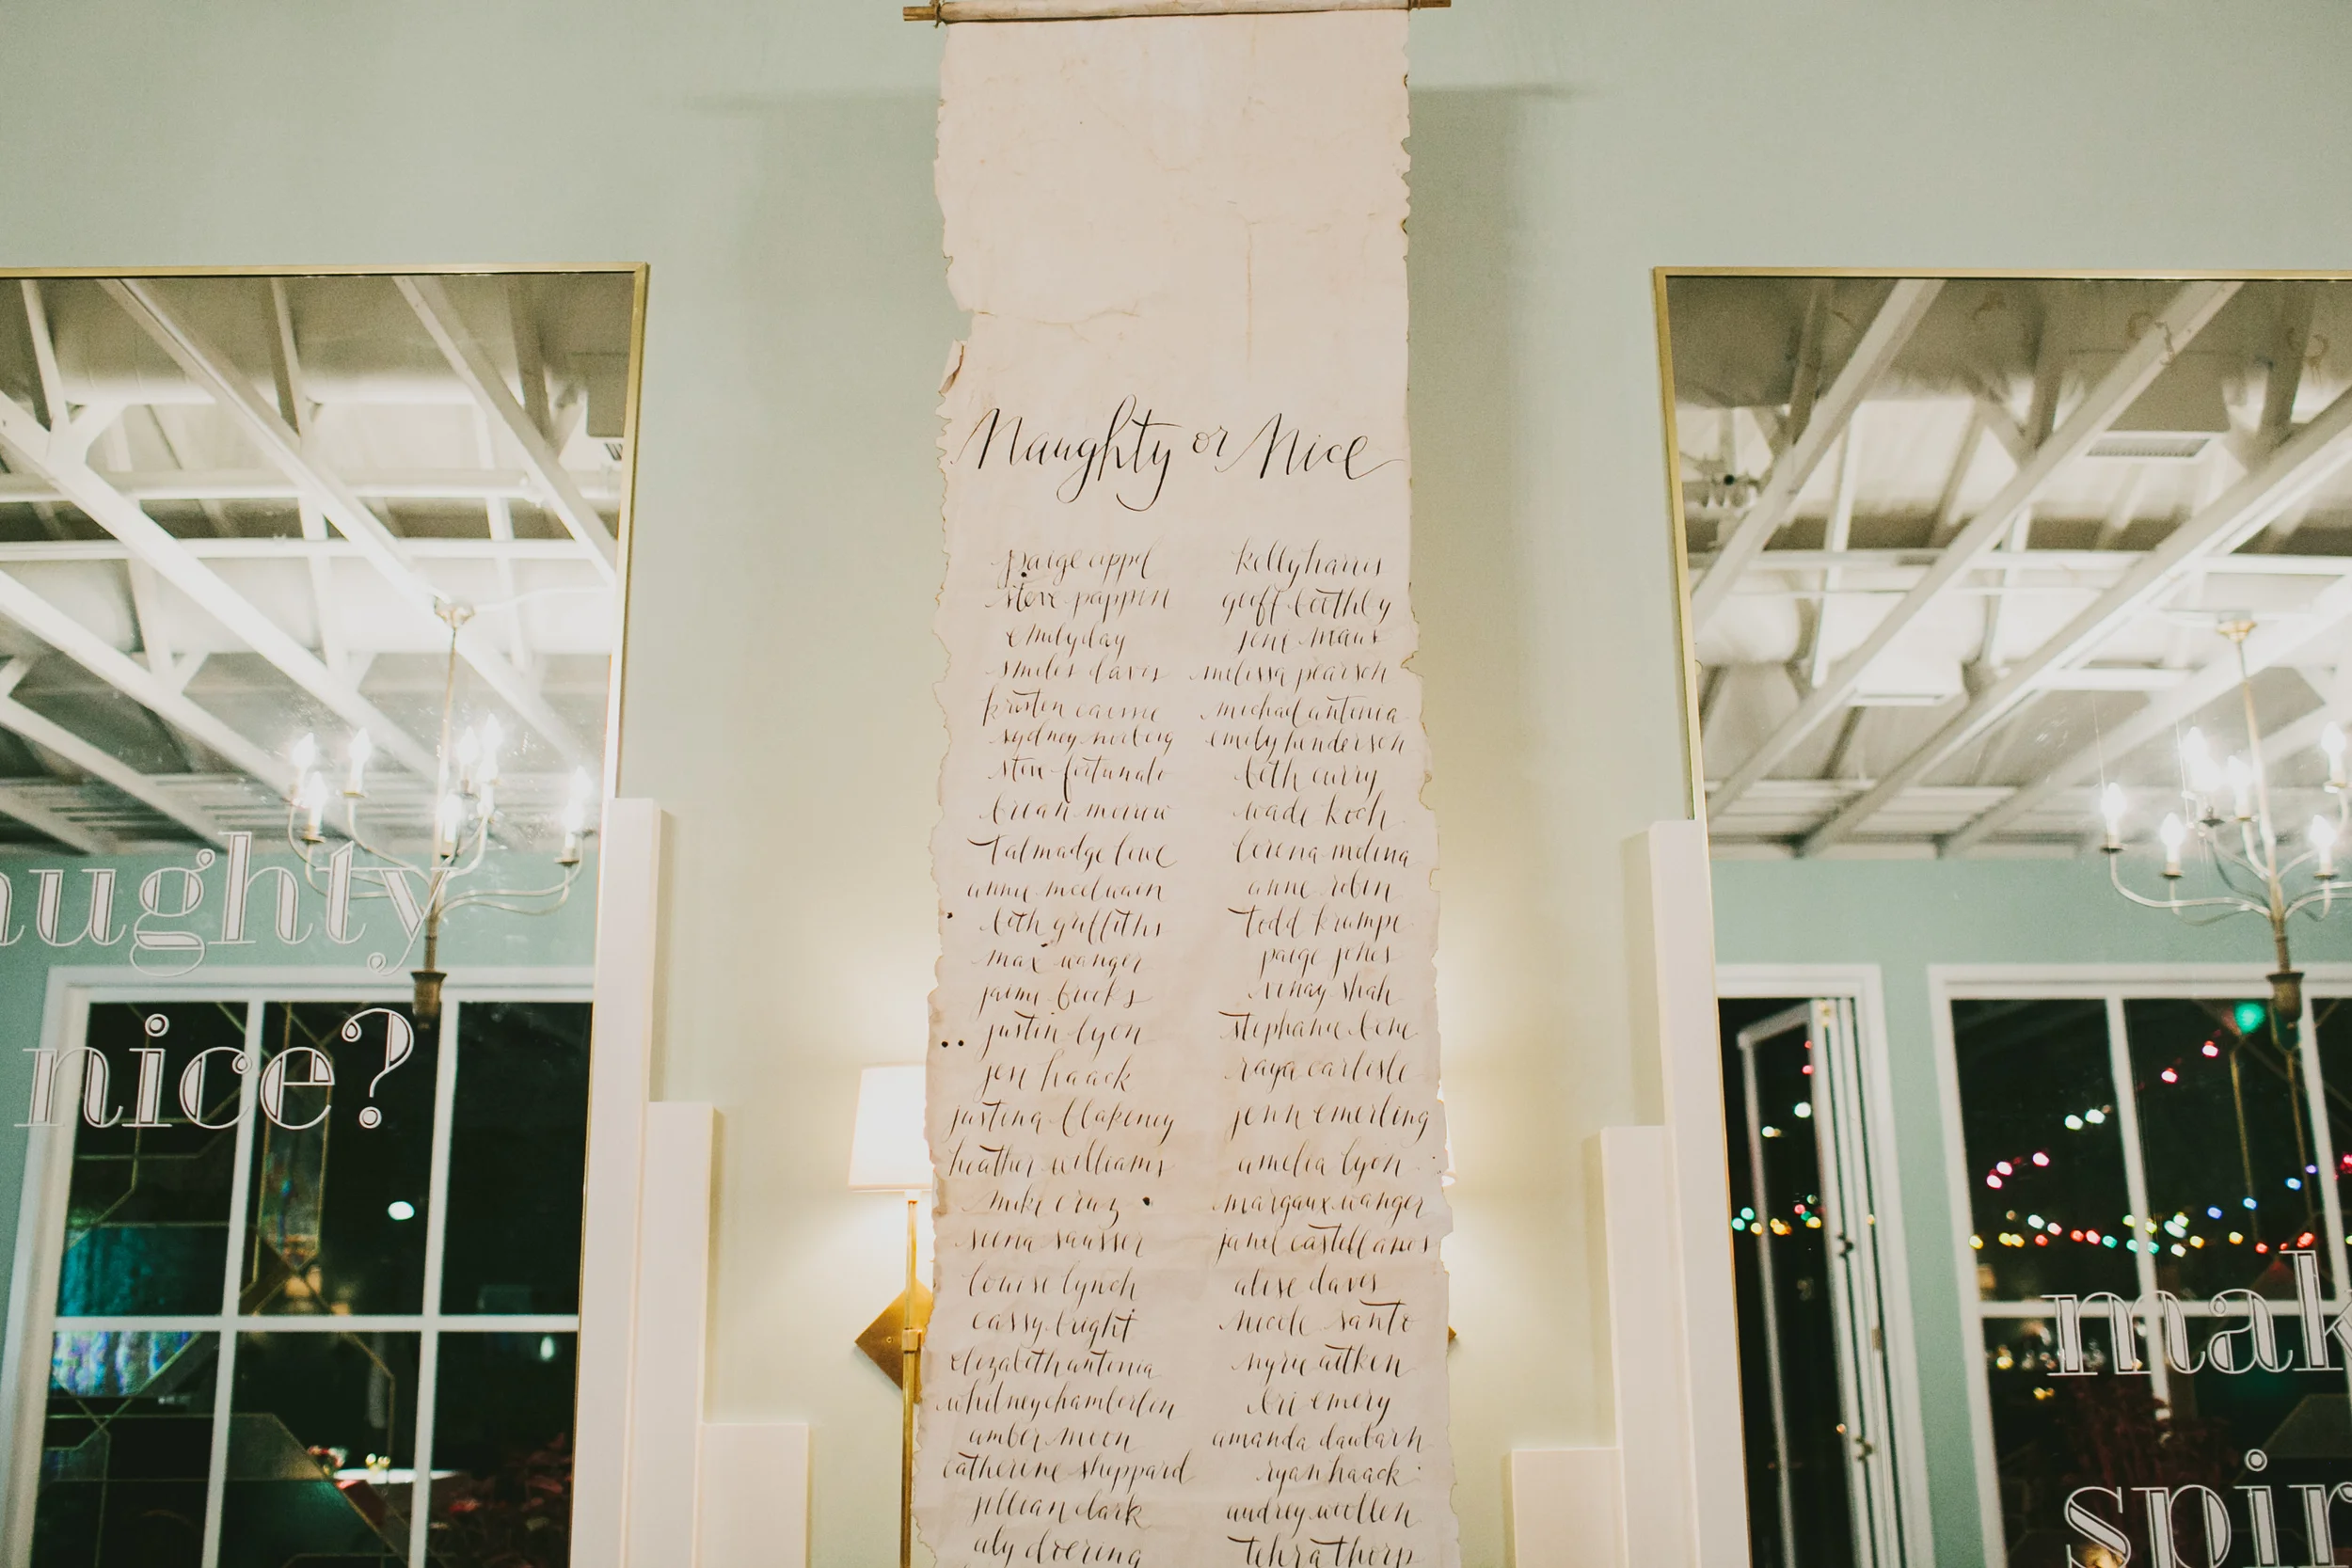 Naughty or Nice
paige appel kelly harris
steve pappin geoff boothby
emily day joni
smiles davis melissa pearson
kristen michael antonia
sydney emily henderson
steve fortunato beth curry
brian morrow wade koch
talmadge lowe lorena molina
annie mcelwain anne robin
beth griffiths todd krumpe
max wanger paige jones
jaime brooks vinay shah
justin lyon stephanie
jen haack raya carlisle
justina blakeney jenn emerling
heather williams amelia lyon
mike cruz margaux wanger
janel castellanos
louise lynch alise daves
cassy bright nicole santo
elizabeth antonia nyrie aitken
whitney chamberlin bri emery
amber moon amanda
catherine sheppard ryan haack
jillian clark audrey woollen
aly doering thorp
aughty
nice?
mak
spir